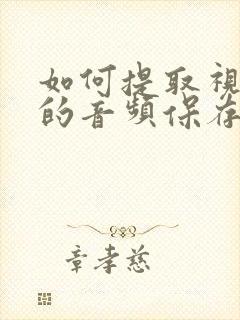 如何提取視
的音頻保存
章孝慈